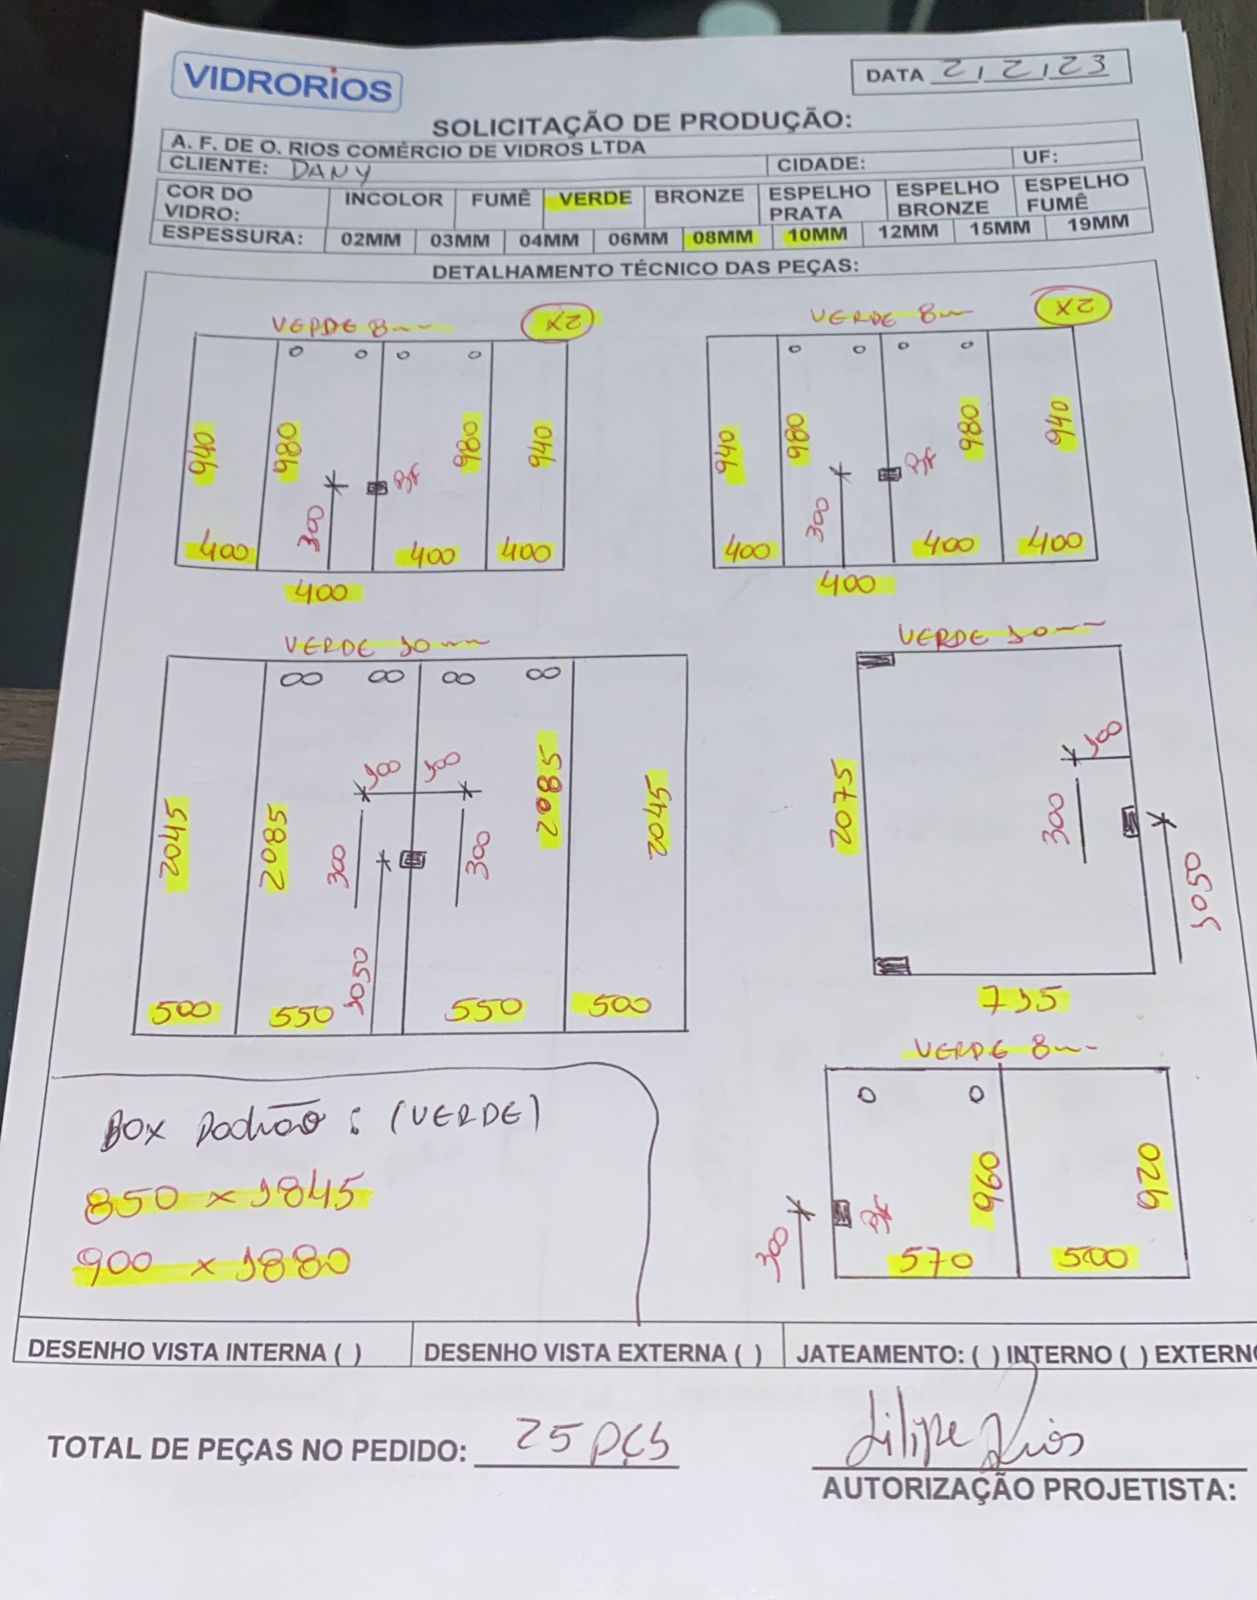 VIDRORIOS
DATA 2/2/23
SOLICITAÇÃO DE PRODUÇÃO:
A. F. DE O. RIOS COMÉRCIO DE VIDROS LTDA
CLIENTE: DANY CIDADE: UF:
COR DO VIDRO: INCOLOR FUMÊ VERDE BRONZE ESPELHO PRATA ESPELHO BRONZE ESPELHO FUMÊ
ESPESSURA: 02MM 03MM 04MM 06MM 08MM 10MM 12MM 15MM 19MM
DETALHAMENTO TÉCNICO DAS PEÇAS:
VERDE 8mm X2
940 980 980 940
300 Bf
400 400 400
400
VERDE 8mm X2
940 980 980 940
300 Bf
400 400 400
400
VERDE 10mm
100 100
2045 2085 2085 2045
300 300
1050
500 550 550 500
VERDE 10mm
100
2075 300
1050
715
VERDE 8mm
960 920
300 Bf
570 500
BOX Padrão : (VERDE)
850 x 1845
900 x 1880
DESENHO VISTA INTERNA ( ) DESENHO VISTA EXTERNA ( ) JATEAMENTO: ( ) INTERNO ( ) EXTERNO
TOTAL DE PEÇAS NO PEDIDO: 25 PÇS
Filipe Rios
AUTORIZAÇÃO PROJETISTA: